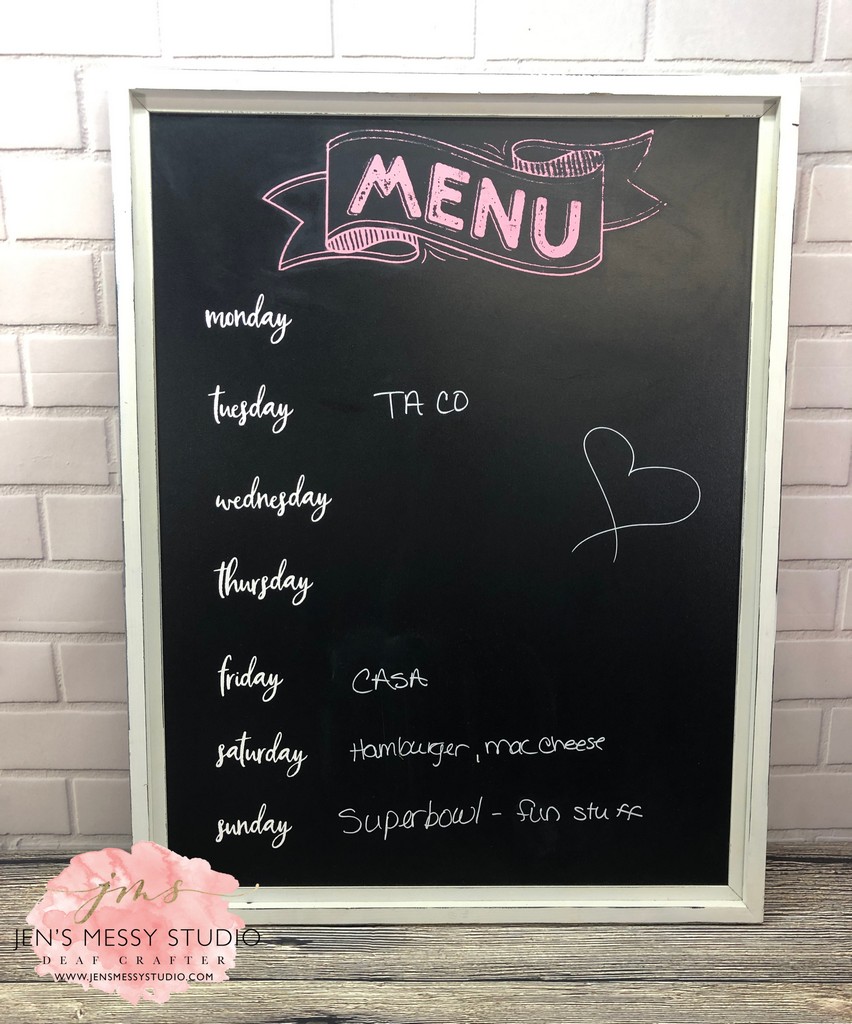 MENU
monday
tuesday TACO
wednesday
thursday
friday CASA
saturday Hamburger, mac cheese
sunday Superbowl - fun stuff
jms
JEN'S MESSY STUDIO
DEAF CRAFTER
WWW.JENSMESSYSTUDIO.COM